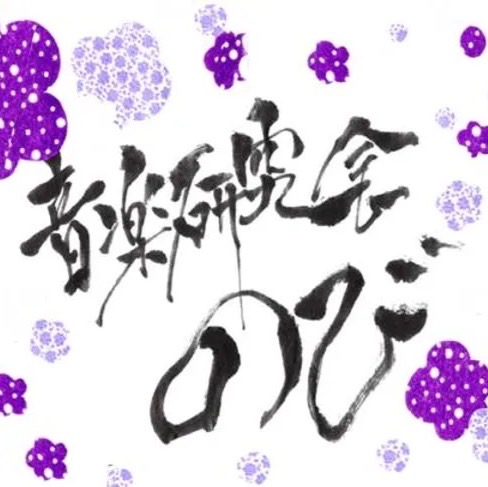 音楽研究会
のび